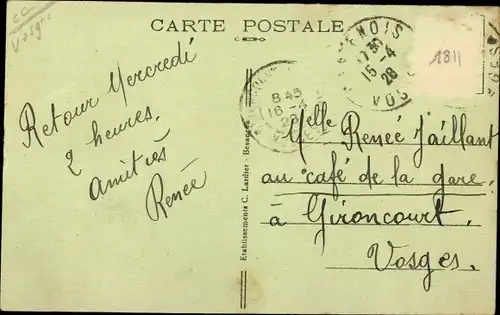 CARTE POSTALE
CC
Vosges
1811
17 30
15-4
28
VOS
8 45
16-4
28
Retour Mercredi
2 heures.
Amitiés
Renée
Etablissements C. Lardier - Besançon
Melle Renée Jaillant
au café de la gare
à Gironcourt.
Vosges.